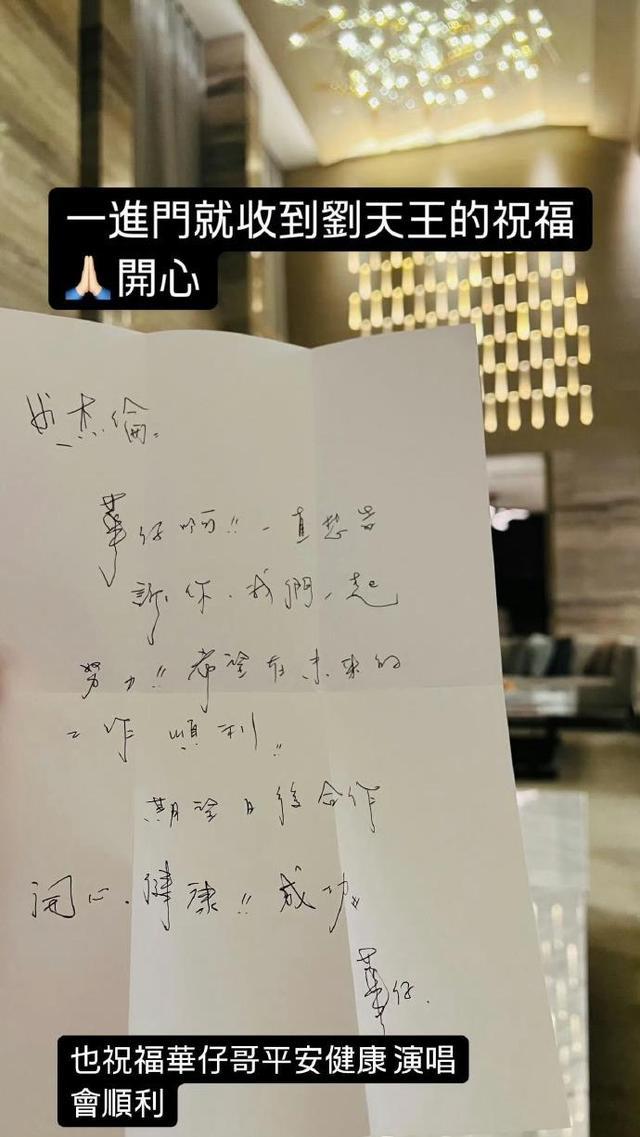 一進門就收到劉天王的祝福
🙏🏻開心
杰倫:
華仔啊!! 一直想告
訴你.我們一起
努力!! 希望在未來的
工作順利!!
期望日後合作
開心.健康!! 成功!!
華仔.
也祝福華仔哥平安健康 演唱
會順利